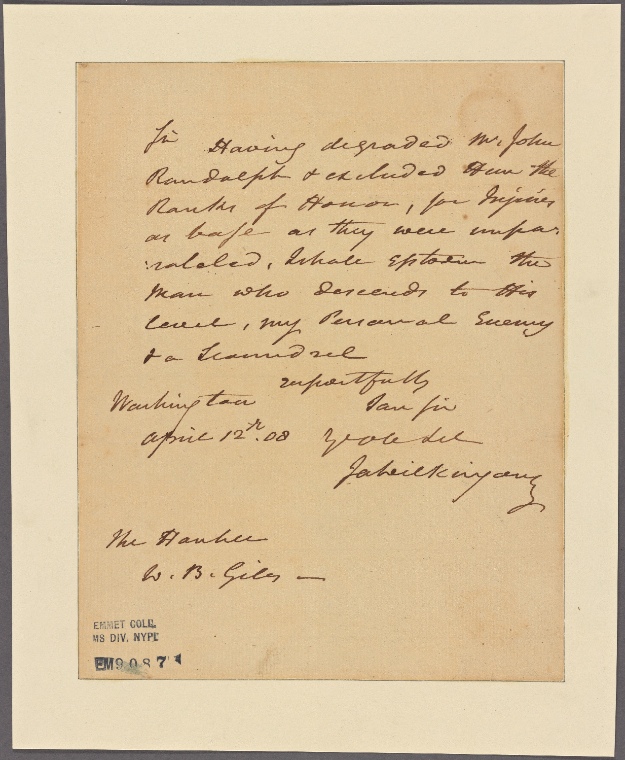 Sir Having degraded Mr. John
Randolph & excluded Him the
Ranks of Honor, for Injuries
as base as they were unpa-
-raleled, I shall Esteem the
Man who descends to His
level, my Personal Enemy
& a Scoundrel
respectfully
Washington I am Sir
April 12th. 08
Ja Wilkinson
The Honble
W. B. Giles —
EMMET COLL.
MS DIV. NYPL
EM9087